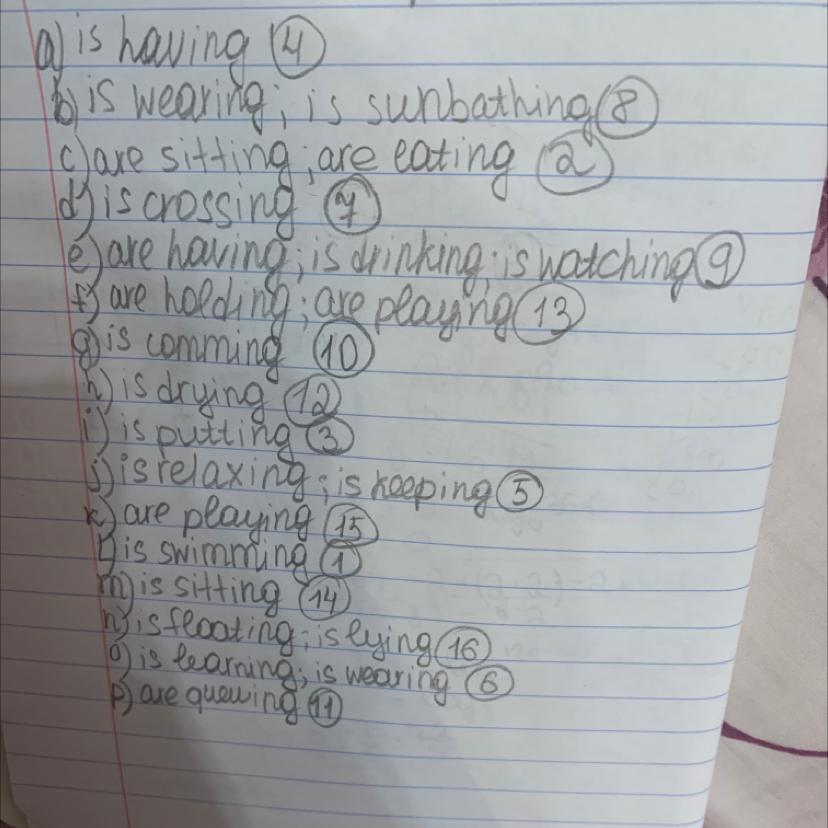 a) is having 4
b) is wearing; is sunbathing 8
c) are sitting; are eating 2
d) is crossing 7
e) are having; is drinking; is watching 9
f) are holding; are playing 13
g) is comming 10
h) is drying 12
i) is putting 3
j) is relaxing; is keeping 5
k) are playing 15
l) is swimming 1
m) is sitting 14
n) is floating; is lying 16
o) is learning; is wearing 6
p) are queuing 11